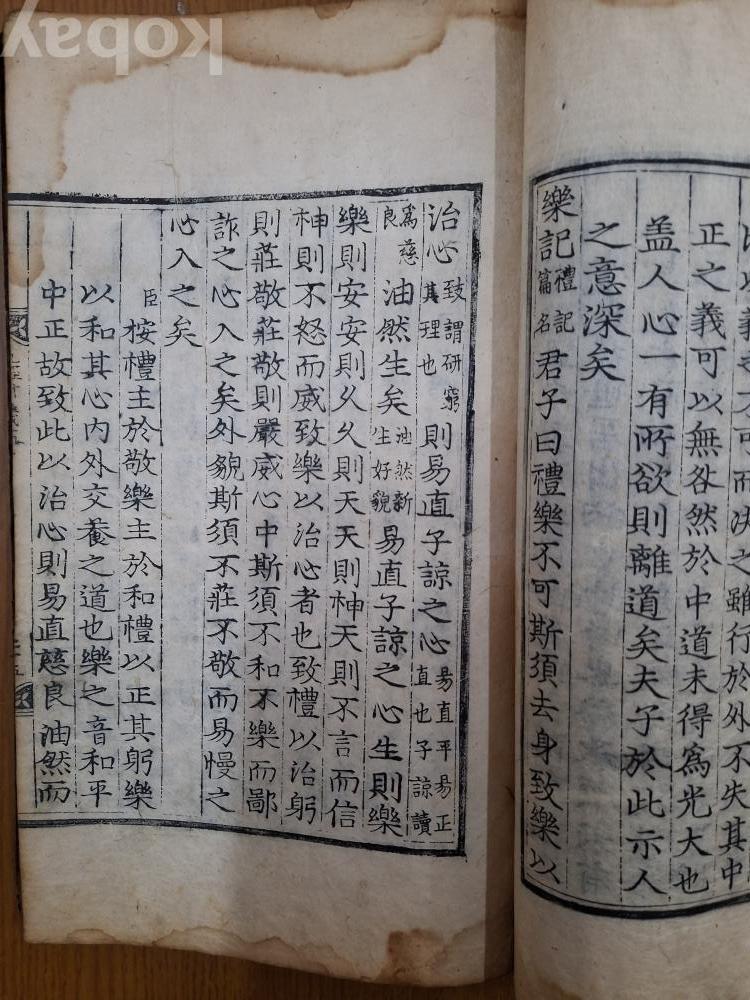 而決之雖行於外不失其中
正之義可以無咎然於中道未得爲光大也
盖人心一有所欲則離道矣夫子於此示人
之意深矣
樂記禮記篇名君子曰禮樂不可斯須去身致樂以
治心致謂研窮其理也則易直子諒之心易直平易正直也子諒讀
爲慈良油然生矣油然新生好貌易直子諒之心生則樂
樂則安安則久久則天天則神天則不言而信
神則不怒而威致樂以治心者也致禮以治躬
則莊敬莊敬則嚴威心中斯須不和不樂而鄙
詐之心入之矣外貌斯須不莊不敬而易慢之
心入之矣
臣按禮主於敬樂主於和禮以正其躬樂
以和其心內外交養之道也樂之音和平
中正故致此以治心則易直慈良油然而
kobay